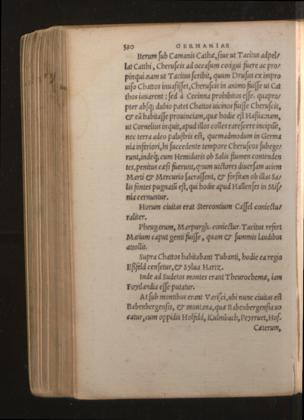 580 GERMANIAE
Iterum sub Camanis Cathæ, siue ut Tacitus adpel/
lat Catthi, Cheruscis ad occasum contigui fuere ac pro/
pinqui. nam ut Tacitus scribit, quum Drusus ex impro
uiso Chattos inuasisset, Cheruscis in animo fuisse ut Cat
thos iuuarent: sed à Cecinna prohibitos esse. quaprop
pter absq; dubio patet Chattos uicinos fuisse Cheruscis,
& eā habitasse prouinciam, quæ hodie est Hassia: nam,
ut Cornelius inquit, apud illos colles rarescere incipiūt,
nec terra adeo palustris est, quemadmodum in Germa
nia inferiori, hi succedente tempore Cheruscos subege/
runt, indeq; cum Hermiduris ob Salis flumen contenden
tes, penitus cæsi fuerunt, quum uictores diuersam aciem
Marti & Mercurio sacrassent, & forsitan ob illas Sa/
lis fontes pugnatū est, qui hodie apud Hallenses in Mis/
nia cernuntur.
Horum ciuitas erat Stereontium Cassel coniectu/
raliter.
Pheugarum, Marpurgū coniectur. Tacitus refert
Matium caput gentis fuisse, quam & summis laudibus
attollit.
Supra Chattos habitabant Tubanti, hodie ea regio
Eisfeld censetur, & sylua Hartz.
Inde ad Sudetos montes erant Theurochemæ, iam
Foytlandia esse putatur.
At sub montibus erant Varisci, ubi nunc ciuitas est
Babenbergensis, & montana, quæ Babenbergensia uo
catur, cum oppidis Holfeld, Kulmbach, Peyrruet, Hof.
Caterum,